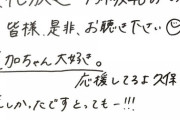 皆様、是非、お聴き下さい
加ちゃん大好き。
応援してるよ久保
しかったですとっても〜!!!